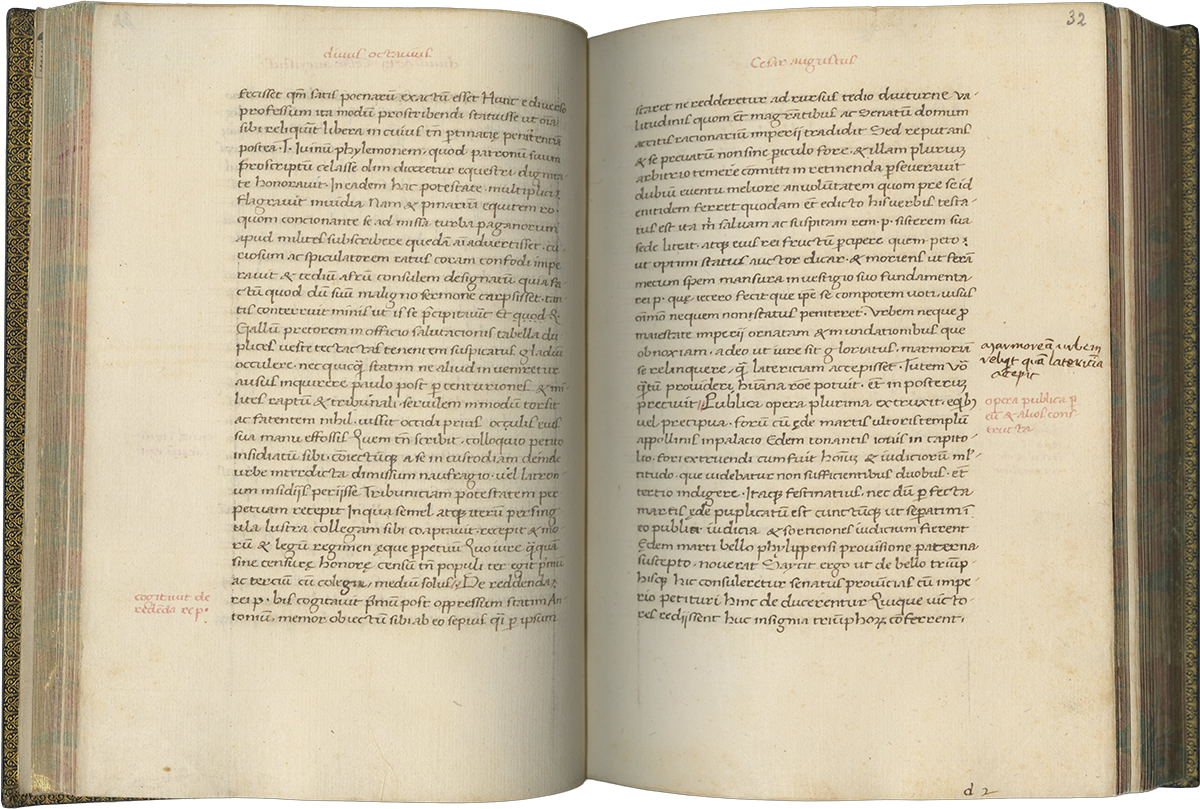 diuus octauius
fecisset qm̄ satis poenarū exactū esset Hunc e diuerso
professum ita modum proscribendi statuisse ut oīa
sibi reliquit libera in cuius tn̄ ptinacie penitentiā
postea · T · Iuiniū phylemonem, quod patronū suum
proscriptū celasse olim diceretur equestri dignita
te honorauit · In eadem hac potestate · multiplici
flagrauit inuidia Nam & pinariū equitem ro ·
quom concionante se ad missa turba paganorum
apud milites subscribere quedā aīaduertisset · cu
riosum ac speculatorem ratus coram confodi impe
rauit & tediū afrū consulem designatū quia fa
ctū quod dū suū maligno sermone carpsisset · tan
tis conterruit minis ut is se p̄cipitauit Et quod Q ·
Gallū pretorem in officio salutacionis tabella du
plices ueste tectas tenentem suspicatus gladiū
occulere · nec quicq̄ statim ne aliud in ueniretur
ausus inquirere paulo post p centuriones & mi
lites raptū & tribunali · seruilem in modum torsit
ac fatentem nihil · iussit occidi prius oculis eius
sua manu effossis Quem tn̄ scribit · colloquio petito
insidiatū sibi · coniectūq; a se in custodiam deinde
urbe interdicta dimissum naufragio · uel latron
um insidijs perijsse Tribuniciam potestatem per
petuam recepit In qua semel atq; iterū per sing
ula lustra collegam sibi cooptauit · recepit & mo
rū & legū regimen eque perpetuū Quo iure q̄quā
sine censure honore censū tn̄ populi ter egit p̄mū
ac terciū cū colegа · mediū solus · De reddenda
rei p · bis cogitauit p̄mū post oppressum statim An
toniū, memor obiectū sibi ab eo sepius q̄i p ipsum
cogitauit de
redēda re p ·
32
Cesar augustus
staret ne redderetur ad rursus tedio diuturne va
litudinis quom et magr̄atibus ac Senatū domum
accitis racionariū imperij tradidit Sed reputans
& se priuatū non sine piculo fore & illam plurius
arbitrio temere comitti in retinenda pseuerauit
dubiū euentu meliore an uoluntate quom pre se id
entidem ferret quodam et edicto his uerbis testa ·
tus est ita m̄ saluam ac suspitam rem · p · sisterem sua
sede liceat · atq; eius rei fructū pcipere quem peto ·
ut optimi status auctor dicar · & moriens ut ferā
mecum spem mansura in uestigio suo fundamenta
rei p · que iecero fecit que ipē se compotem uoti uisus
oīmo nequem noui status peniteret · Vrbem neque p
maiestate imperij ornatam & inundationibus que
obnoxiam, adeo ut iure sit gloriatus, marmoriā
se relinquere · q̄ latericiam accepisset · Tutem uō
q̄tū prouideri hūana rōe potuit · et in posterū
prestitit Publica opera plurima extruxit · eq̄b;
uel precipua · forū cū ede martis ultoris templū
appollinis in palacio Edem tonantis iouis in capito ·
lio · fori extruendi cum fuit hominū & iudiciorum ml̄
titudo · que uidebatur non sufficientibus duobus · et
tertio indigere · Itaq; festinatius, nec dū pfecta
martis ede puplicatū est cunctūq; ut sepatim i
eo publica iudicia & sortitiones iudicium fierent
Edem marti bello phylippensi prouisione paterna
suscepto · nouerat Sanxit ergo ut de bello triūp ·
hisq; hic consuleretur senatus prouicias cū impe
rio petituri hinc deducerentur Quique uicto ·
res redijssent huc insignia triūphorꝝ cōferrent ·
marmoreā urbem
reliqit quā latericiā
acepit
opera publica p
eū & alios cons
tructa
d 2